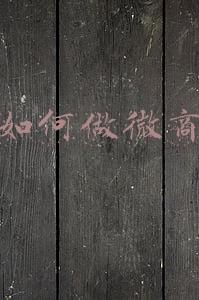 如何做微商